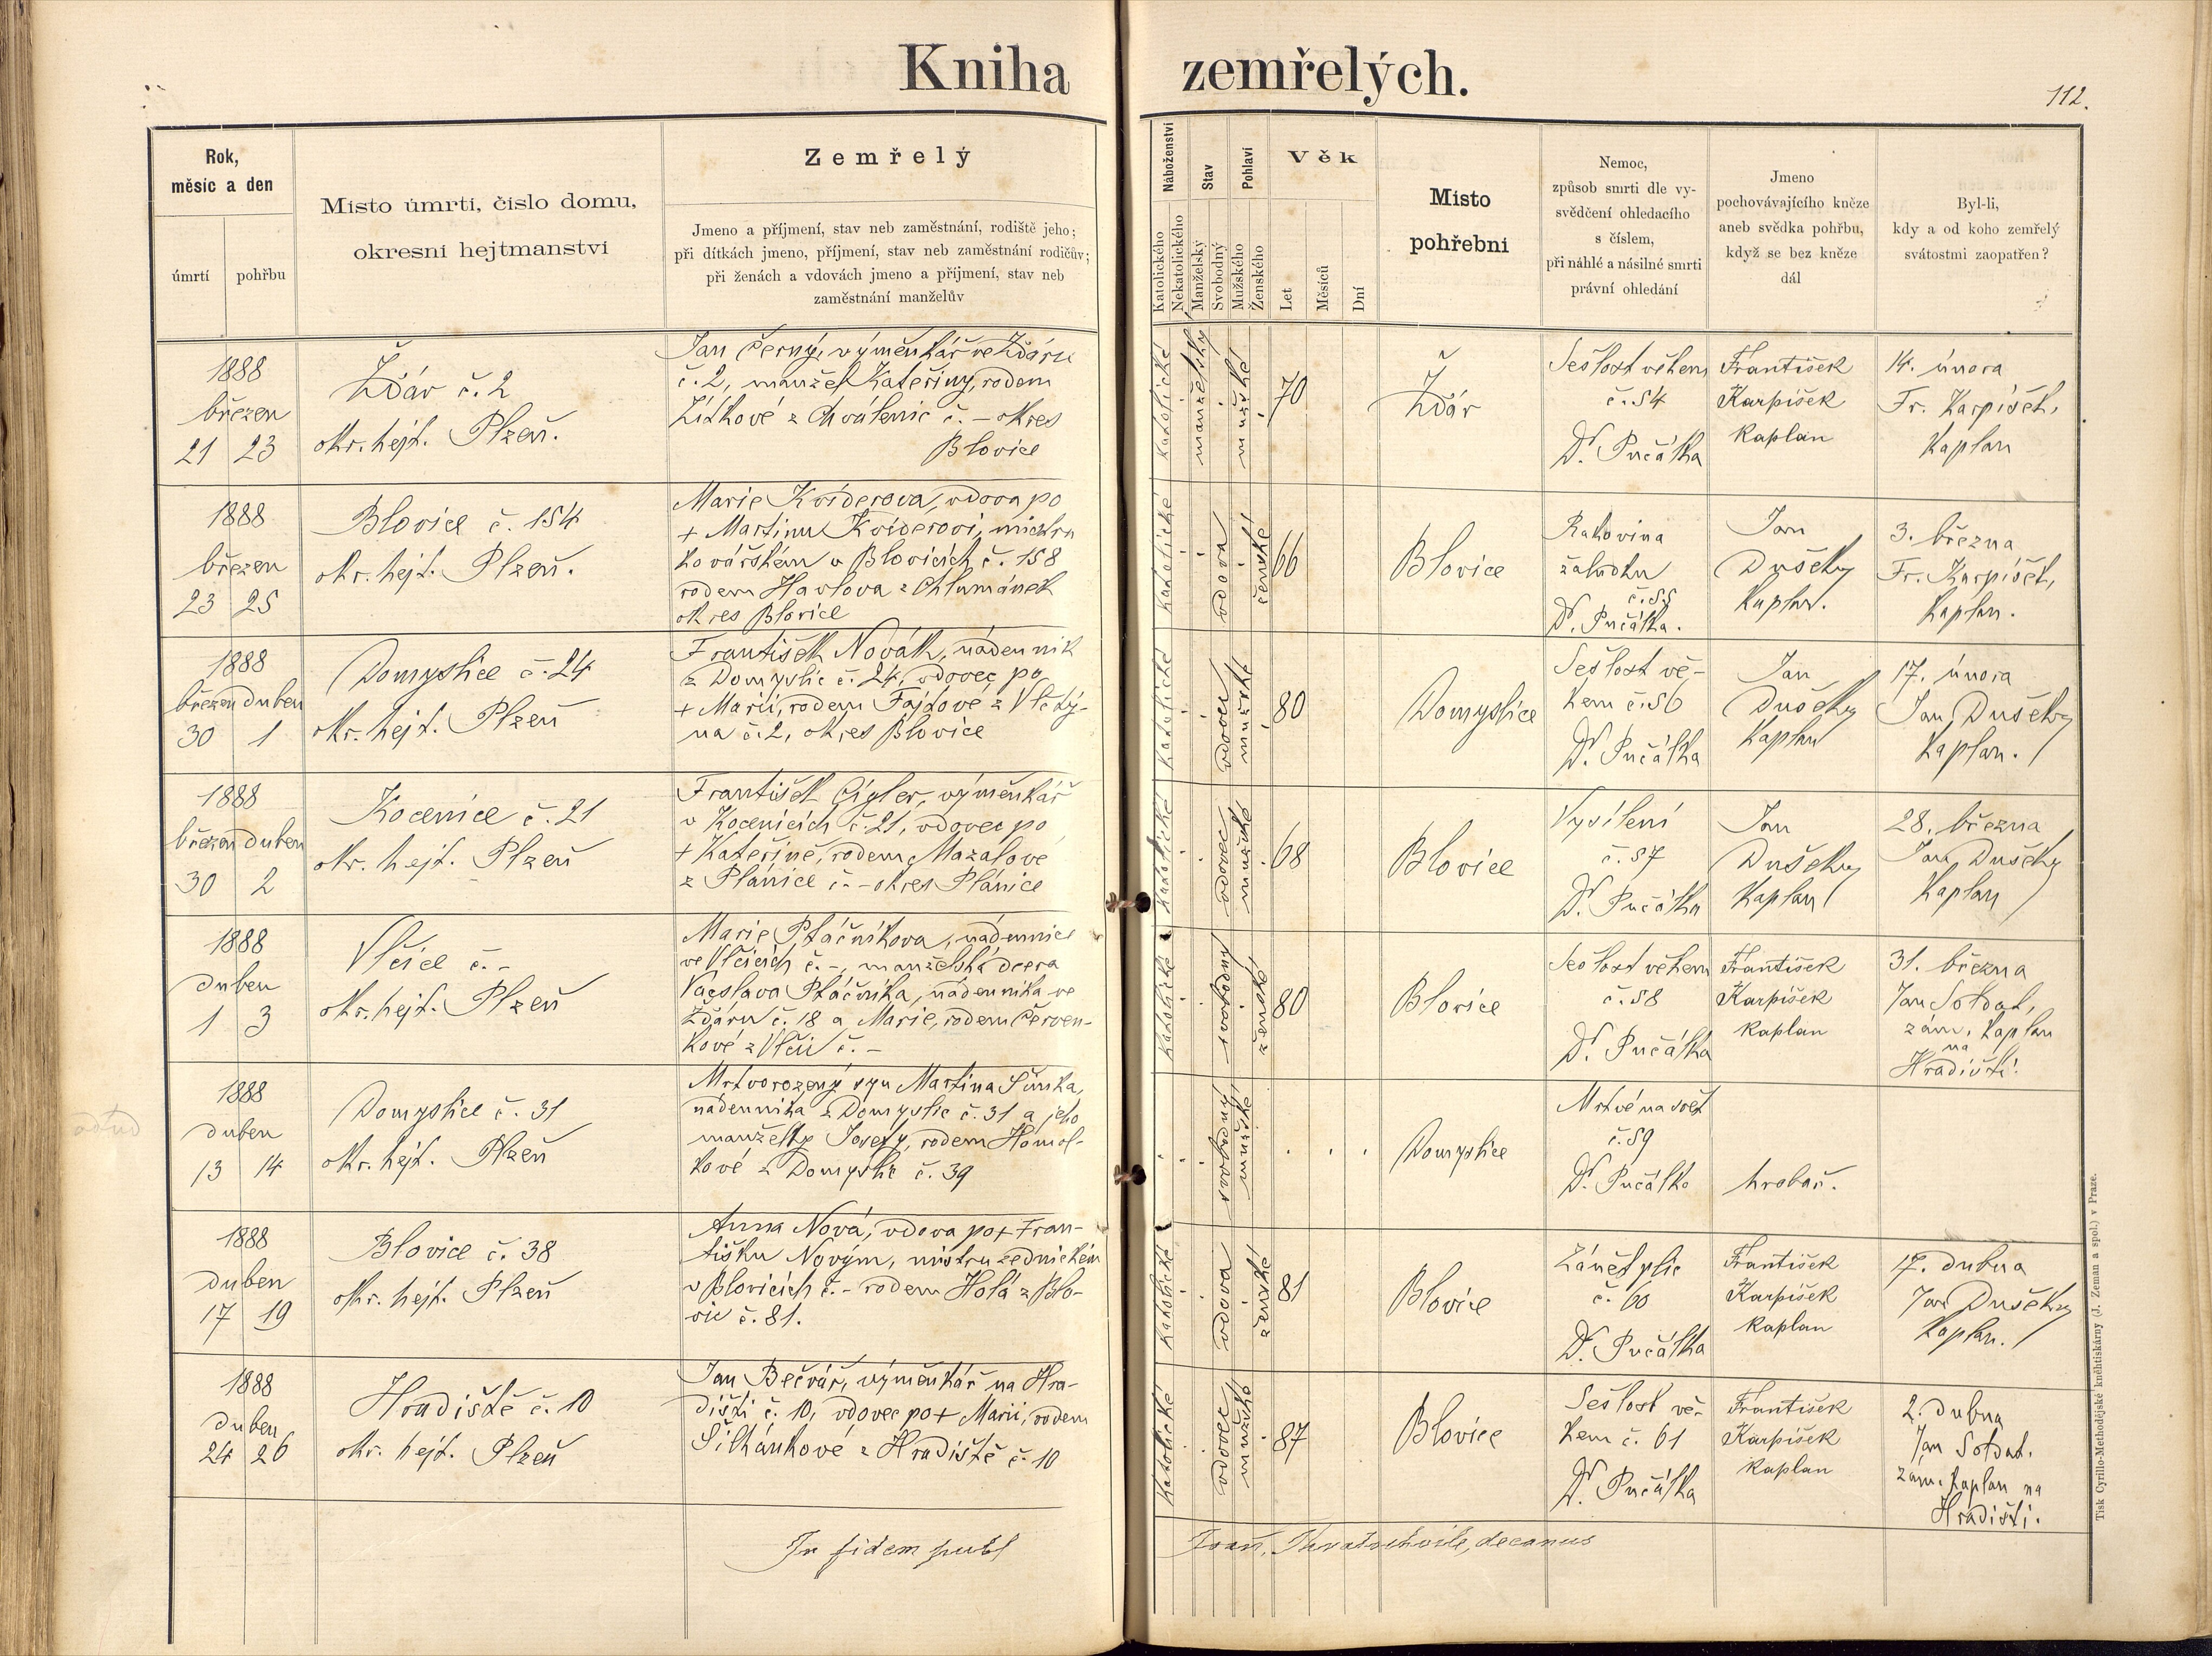 Kniha zemřelých.
112.
Rok,
měsíc a den
úmrtí
pohřbu
Místo úmrtí, číslo domu,
okresní hejtmanství
Zemřelý
Jmeno a příjmení, stav neb zaměstnání, rodiště jeho;
při dítkách jmeno, příjmení, stav neb zaměstnání rodičův;
při ženách a vdovách jmeno a příjmení, stav neb
zaměstnání manželův
Náboženství
Katolického
Nekatolického
Stav
Manželský
Svobodný
Pohlaví
Mužského
Ženského
Věk
Let
Měsíců
Dní
Místo
pohřební
Nemoc,
způsob smrti dle vy-
svědčení ohledacího
s číslem,
při náhlé a násilné smrti
právní ohledání
Jmeno
pochovávajícího kněze
aneb svědka pohřbu,
když se bez kněze
dál
Byl-li,
kdy a od koho zemřelý
svátostmi zaopatřen?
1888
březen
21 23
Žďár č. 2
okr. hejt. Plzeň.
Jan Černý, výměnkář ve Žďáru
č. 2, manžel Kateřiny, rodem
Žitkové z Chválenic č. – okres
Blovice
katolické
manželský
mužské
70
Žďár
Sešlost věkem
č. 54
Dr. Pučálka
František
Karpíšek
kaplan
14. února
Fr. Karpíšek,
kaplan
1888
březen
23 25
Blovice č. 154
okr. hejt. Plzeň.
Marie Kviderova, vdova po
+ Martinu Kviderovi, mistru
kovářském v Blovicích č. 158
rodem Havlova z Chlumánek
okres Blovice
katolické
vdova
ženské
66
Blovice
Rakovina
žaludku
č. 55
Dr. Pučálka.
Jan
Dušek
kaplan.
3. března
Fr. Karpíšek,
kaplan.
1888
březen duben
30 1
Domyslice č. 24
okr. hejt. Plzeň
František Novák, nádenník
z Domyslic č. 24, vdovec po
+ Marii, rodem Fajtové z Vlčtý-
na č. 2, okres Blovice
katolické
vdovec
mužské
80
Domyslice
Sešlost vě-
kem č. 56
Dr. Pučálka
Jan
Dušek
kaplan
17. února
Jan Dušek
kaplan.
1888
březen duben
30 2
Kocenice č. 21
okr. hejt. Plzeň
František Cigler, výměnkář
v Kocenicích č. 21, vdovec po
+ Kateřině, rodem Mazalove
z Plánice č. – okres Plánice
katolické
vdovec
mužské
68
Blovice
Vysílení
č. 57
Dr. Pučálka
Jan
Dušek
kaplan
28. března
Jan Dušek
kaplan
1888
duben
1 3
Vlčice č. –
okr. hejt. Plzeň
Marie Ptáčníkova, nádennice
ve Vlčicích č. –, manželská dcera
Vacslava Ptáčníka, nádenníka ve
Žďáru č. 18 a Marie, rodem Červen-
kové z Vlčic č. –
katolické
svobodný
ženské
80
Blovice
Sešlost věkem
č. 58
Dr. Pučálka
František
Karpíšek
kaplan
31. března
Jan Soldat,
zám. kaplan
na
Hradišti.
1888
duben
13 14
Domyslice č. 31
okr. hejt. Plzeň
Mrtvorozený syn Martina Šimka,
nádenníka z Domyslic č. 31 a jeho
manželky Josefy, rodem Homol-
kové z Domyslic č. 39
svobodný
mužské
Domyslice
Mrtvé na svět
č. 59
Dr. Pučálka
hrobař.
1888
duben
17 19
Blovice č. 38
okr. hejt. Plzeň
Anna Nová, vdova po + Fran-
tišku Novým, mistru zednickém
v Blovicích č. – rodem Holá z Blo-
vic č. 81.
katolické
vdova
ženské
81
Blovice
Zánět plic
č. 60
Dr. Pučálka
František
Karpíšek
kaplan
17. dubna
Jan Dušek
kaplan.
1888
duben
24 26
Hradiště č. 10
okr. hejt. Plzeň
Jan Bečvář, výměnkář na Hra-
dišti č. 10, vdovec po + Marii, rodem
Šilhánkové z Hradiště č. 10
katolické
vdovec
mužské
87
Blovice
Sešlost vě-
kem č. 61
Dr. Pučálka
František
Karpíšek
kaplan
2. dubna
Jan Soldat.
zám. kaplan na
Hradišti.
In fidem publ
decanus
odtud
Tisk Cyrillo-Methodějské knihtiskárny (J. Zeman a spol.) v Praze.